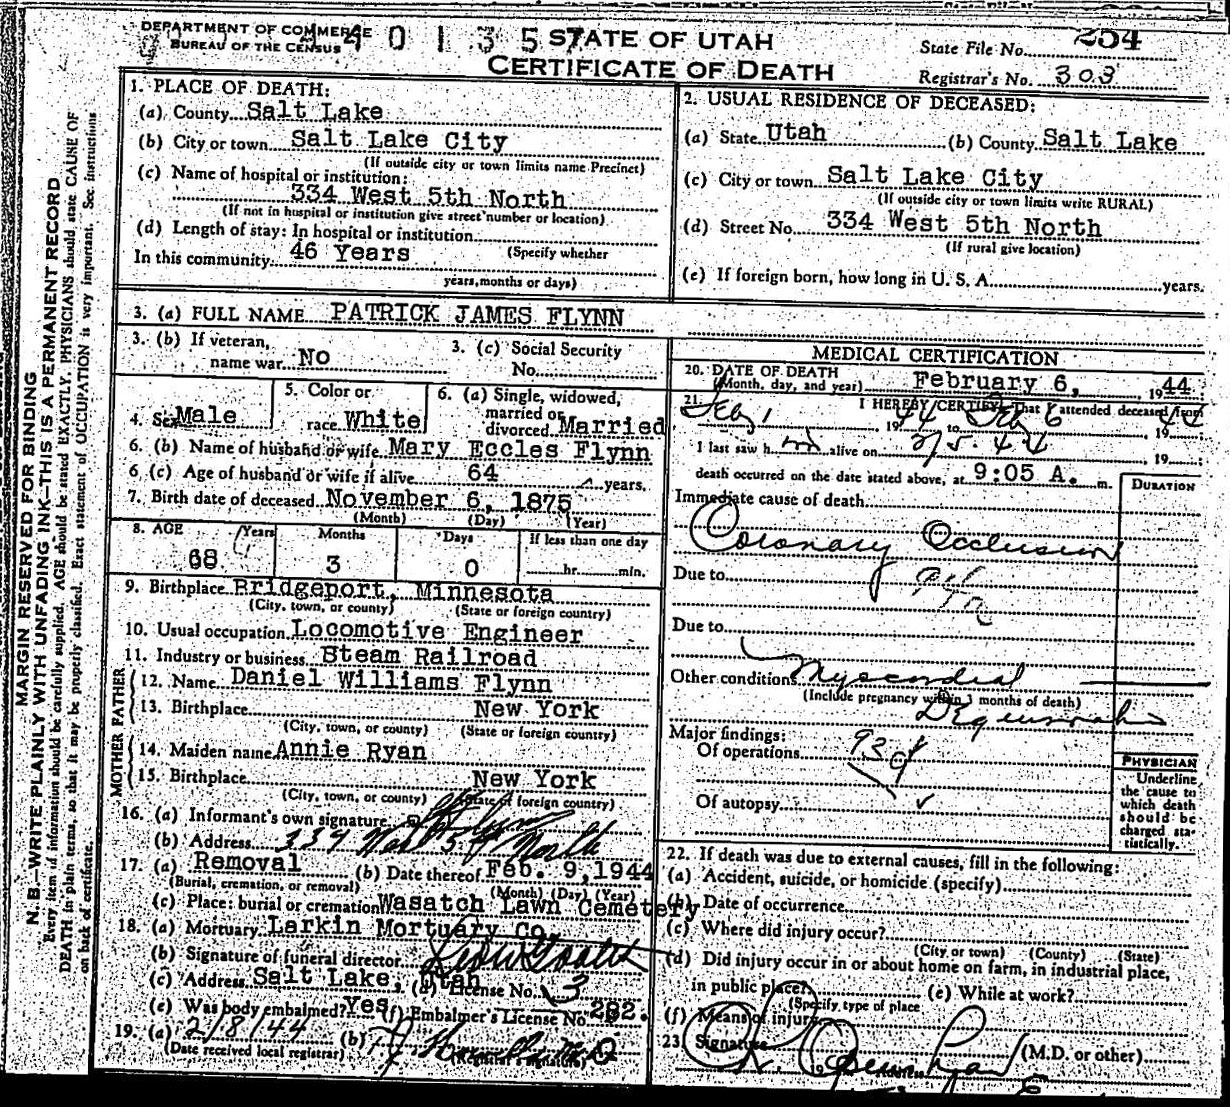 DEPARTMENT OF COMMERCE
BUREAU OF THE CENSUS
4401357
STATE OF UTAH
CERTIFICATE OF DEATH
State File No. 254
Registrar's No. 303
MARGIN RESERVED FOR BINDING
N. B.—WRITE PLAINLY WITH UNFADING INK—THIS IS A PERMANENT RECORD
Every item of information should be carefully supplied. AGE should be stated EXACTLY. PHYSICIANS should state CAUSE OF
DEATH in plain terms, so that it may be properly classified. Exact statement of OCCUPATION is very important. See instructions
on back of certificate.
1. PLACE OF DEATH:
(a) County Salt Lake
(b) City or town Salt Lake City
(If outside city or town limits name Precinct)
(c) Name of hospital or institution:
334 West 5th North
(If not in hospital or institution give street number or location)
(d) Length of stay: In hospital or institution
In this community 46 Years (Specify whether
years, months or days)
2. USUAL RESIDENCE OF DECEASED:
(a) State Utah (b) County Salt Lake
(c) City or town Salt Lake City
(If outside city or town limits write RURAL)
(d) Street No. 334 West 5th North
(If rural give location)
(e) If foreign born, how long in U. S. A. years.
3. (a) FULL NAME PATRICK JAMES FLYNN
3. (b) If veteran,
name war No
3. (c) Social Security
No.
4. Sex Male
5. Color or
race White
6. (a) Single, widowed,
married or
divorced Married
6. (b) Name of husband or wife Mary Eccles Flynn
6. (c) Age of husband or wife if alive 64 years.
7. Birth date of deceased November 6, 1875
(Month) (Day) (Year)
8. AGE Years Months Days If less than one day
68 3 0 hr. min.
9. Birthplace Bridgeport, Minnesota
(City, town, or county) (State or foreign country)
10. Usual occupation Locomotive Engineer
11. Industry or business Steam Railroad
FATHER
12. Name Daniel Williams Flynn
13. Birthplace New York
(City, town, or county) (State or foreign country)
MOTHER
14. Maiden name Annie Ryan
15. Birthplace New York
(City, town, or county) (State or foreign country)
16. (a) Informant's own signature
(b) Address 334 West 5th North
17. (a) Removal (b) Date thereof Feb. 9, 1944
(Burial, cremation, or removal) (Month) (Day) (Year)
(c) Place: burial or cremation Wasatch Lawn Cemetery
18. (a) Mortuary Larkin Mortuary Co.
(b) Signature of funeral director
(c) Address Salt Lake, Utah (d) License No. 3
(e) Was body embalmed? Yes (f) Embalmer's License No. 282.
19. (a) 2/8/44 (b)
(Date received local registrar) (Registrar's signature)
MEDICAL CERTIFICATION
20. DATE OF DEATH
(Month, day, and year) February 6, 1944
21. I HEREBY CERTIFY That I attended deceased from
Feb 1, 1944 to Feb 6, 1944
I last saw him alive on 2/5. 44, 19
death occurred on the date stated above, at 9:05 A. m.
DURATION
Immediate cause of death
Coronary Occlusion
Due to
Due to
Other conditions Myocardial
(Include pregnancy within 3 months of death)
Degeneration
Major findings:
Of operations
Of autopsy
PHYSICIAN
Underline
the cause to
which death
should be
charged sta-
tistically.
22. If death was due to external causes, fill in the following:
(a) Accident, suicide, or homicide (specify)
(b) Date of occurrence
(c) Where did injury occur?
(City or town) (County) (State)
(d) Did injury occur in or about home on farm, in industrial place,
in public place? (e) While at work?
(Specify type of place)
(f) Means of injury
23. Signature (M.D. or other)